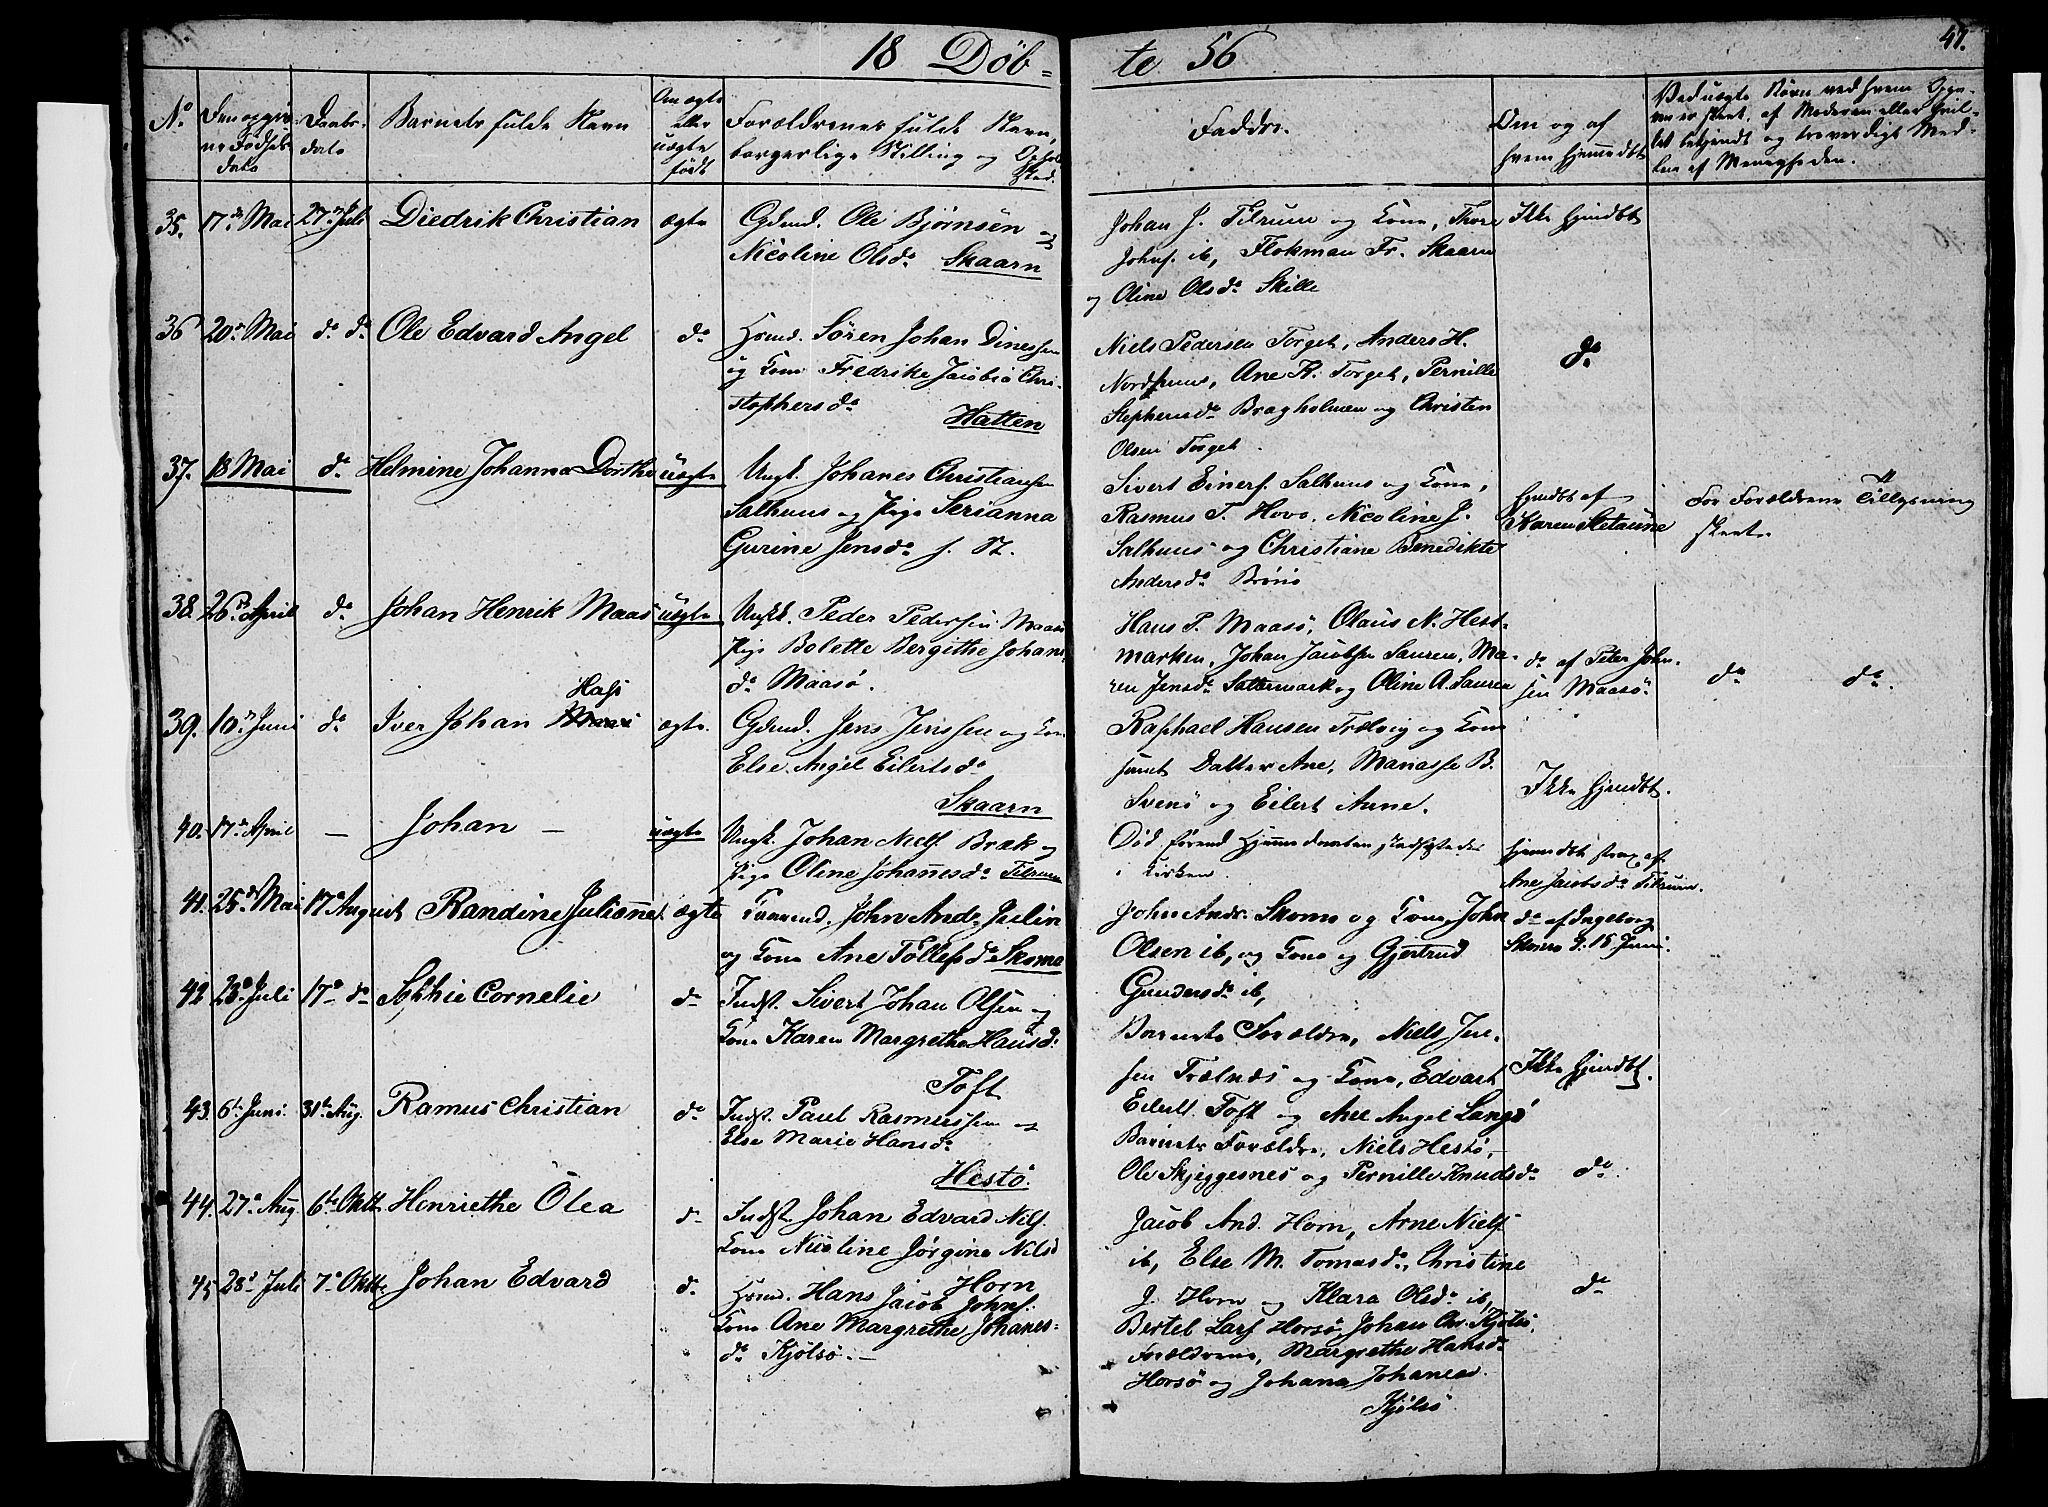 18 Døb-
te 56
47.
No
Den opgiv-
ne Fødsels
dato
Daabs-
dato
Barnets fulde Navn
Om ægte
eller
uægte
født
Forældrenes fulde Navn,
borgerlige Stilling og Opholds
sted.
Faddre.
Om og af
hvem hjemmedøbt
Ved uægte Børn ved hvem Opga-
ven er skeet, af Moderen eller hvil-
ket bekjendt og troværdigt Med-
lem af Menigheden.
35. 17de Mai 27de Juli Diedrik Christian ægte
Gdmd. Ole Bjørnsen og
Nicoline Olsda Skaarn
Johan J. Tilrum og Kone, Thore
Johns. ib, Flokman Fr. Skaarn
og Oline Olsda Skille
Ikke hjmdbt
36 20de Mai do do Ole Edvard Angel do
Hsmd. Sören Johan Dinessen
og Kone Fredrike Jacobia Chri-
stophersda
Hatten
Niels Pedersen Torget, Anders H.
Nordhuus, Ane K. Torget, Pernille
Stephensda Bragholmen og Christen
Olsen Torget.
do
37. 18 Mai do Helmine Johanna Dorthe uægte
Ungk. Johanes Christiansen
Salhuus og Pige Serianna
Gurine Jensda f. St.
Sivert Einers. Salhuus og Kone,
Rasmus T. Hovo, Nicoline J.
Salhuus og Christiane Benedikte
Andersda Brönö
hjmdbt af
Karen
For Forældrene Tillysning
skeet.
38. 26de April do Johan Henrik Maas uægte
Ungk. Peder Pedersen Maasö
Pige Bolette Bergithe Johans
da Maasö.
Hans P. Maasö, Olaus N. Hest-
marken, Johan Jacobsen Sauren, Ma-
ren Jensda Saltermark og Oline A. Sauren
do af Peter John-
sen Maasö.
do do.
39. 10de Juni do Iver Johan Hass ægte.
Gdmd. Jens Jenssen og Kone
Else Angel Eilertsda
Skaarn
Raphael Hansen Trælvig og Kone
samt Datter Ane, Manasse B.
Svenö og Eilert Aune.
Ikke hjmdbt.
40. 17de April — Johan — uægte
Ungk. Johan Niels. Bræk og
Pige Oline Johanesda Tilrum
Død førend Hjemmedaaben stadfæstedes
i Kirken.
hjemmedbt strax af
Ane Jacobsda Tilrum.
41. 25de Mai 17de August Randine Julianne ægte
John Andr. Julin
og Kone Ane Tollefsda Skomo
John Andr. Skomo og Kone, John
Olsen ib, og Kone og Gjertrud
Gundersda ib,
do af Ingeborg
Skomo d. 15 Juni
42 28de Juli 17de do Sophie Cornelie do
Indst. Sivert Johan Olsen og
Kone Karen Margrethe Hansd.
Toft
Barnets Forældre, Niels Jen-
sen Trælnæs og Kone, Edvart
Eilert. Toft og Ane Angel Langö
Ikke hjmdbt.
43. 6te Juni. 31te Aug. Ramus Christian do
Indst. Paul Rasmussen og
Else Marie Hansda
Hestö.
Barnets Forældre, Niels Hestö,
Ole Skjeggesnes og Pernille Knudsda
do.
44. 27de Aug. 6te Oktb. Henriethe Olea do
Indst. Johan Edvard Nils.
Kone Nicoline Jørgine Nilsd
Horn
Jacob And. Horn, Arne Niels.
ib, Else M. Tomasda, Christine
J. Horn og Klara Olsda ib,
do
45 28de Juli 7de Oktb. Johan Edvard do
Hsmd. Hans Jacob Johns.
Kone Ane Margrethe Johanes-
da Kjølsö.
Bertel Lars. Horsö, Johan Chr. Kjölsö,
Forældrene, Margrethe Hansda
Horsö og Johana Johanesd.
Kjölsö